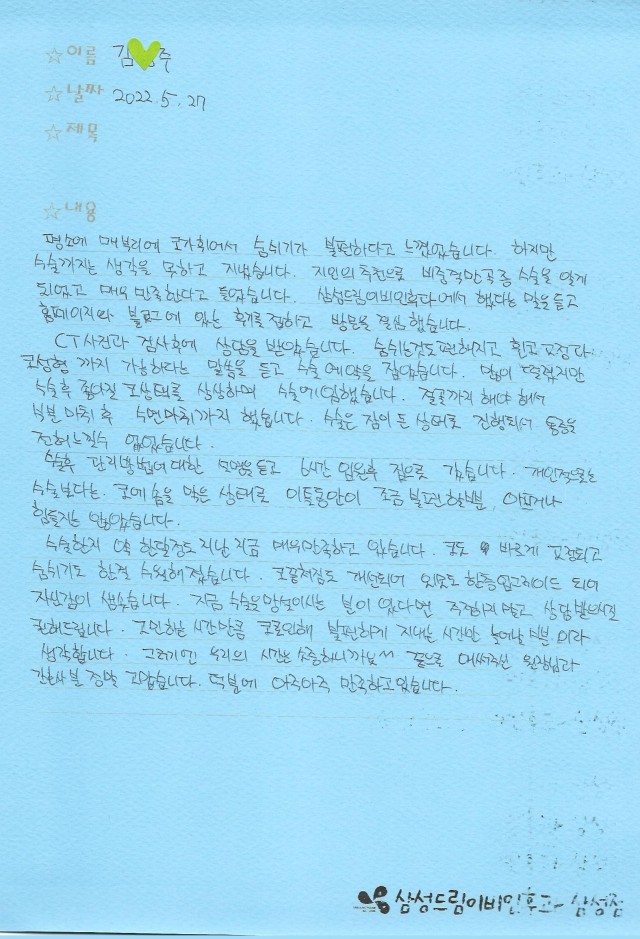 ☆이름 김 주
☆날짜 2022.5.27
☆제목
☆내용
평소에 매부리에 코가휘어서 숨쉬기가 불편하다고 느꼈었습니다. 하지만
수술까지는 생각을 못하고 지냈습니다. 지인의 추천으로 비중격만곡증 수술을 알게
되었고 매우 만족한다고 들었습니다. 삼성드림이비인후과에서 했다는 말을 듣고
홈페이지와 블로그에 있는 후기를 접하고 방문을 결심했습니다.
CT사진과 검사후에 상담을 받았습니다. 숨쉬는것도 편해지고 휜코교정과
코성형 까지 가능하다는 말씀을 듣고 수술예약을 잡았습니다. 많이 떨렸지만
수술후 좋아질 코상태를 상상하며 수술에 임했습니다. 절골까지 해야 해서
부분 마취 후 수면마취까지 했습니다. 수술은 잠이 든 상태로 진행되서 통증을
전혀느낄수 없었습니다.
수술후 관리방법에대한 설명을듣고 6시간 입원후 집으로 갔습니다. 개인적으로는
수술보다는 코에 솜을 막은 상태로 이틀동안이 조금 불편할뿐, 아프거나
힘들지는 않았습니다.
수술한지 약 한달정도 지난 지금 매우만족하고 있습니다. 코도 바르게 교정되고
숨쉬기도 한결 수월해졌습니다. 코끝처짐도 개선되어 외모도 한층업그레이드 되어
자신감이 생겼습니다. 지금 수술을망설이시는 분이 있다면 주저하지 말고 상담 받으시길
권해드립니다. 고민하는 시간만큼 코로인해 불편하게 지내는 시간만 늘어날 뿐이라
생각합니다. 그러기엔 우리의 시간은 소중하니까요^^ 끝으로 애써주신 원장님과
간호사분 정말 고맙습니다. 덕분에 아주아주 만족하고있습니다.
삼성드림이비인후과 삼성점